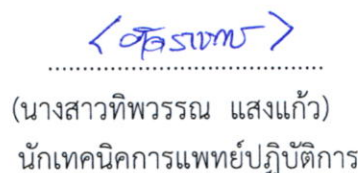 (นางสาวทิพวรรณ แสงแก้ว)
นักเทคนิคการแพทย์ปฏิบัติการ